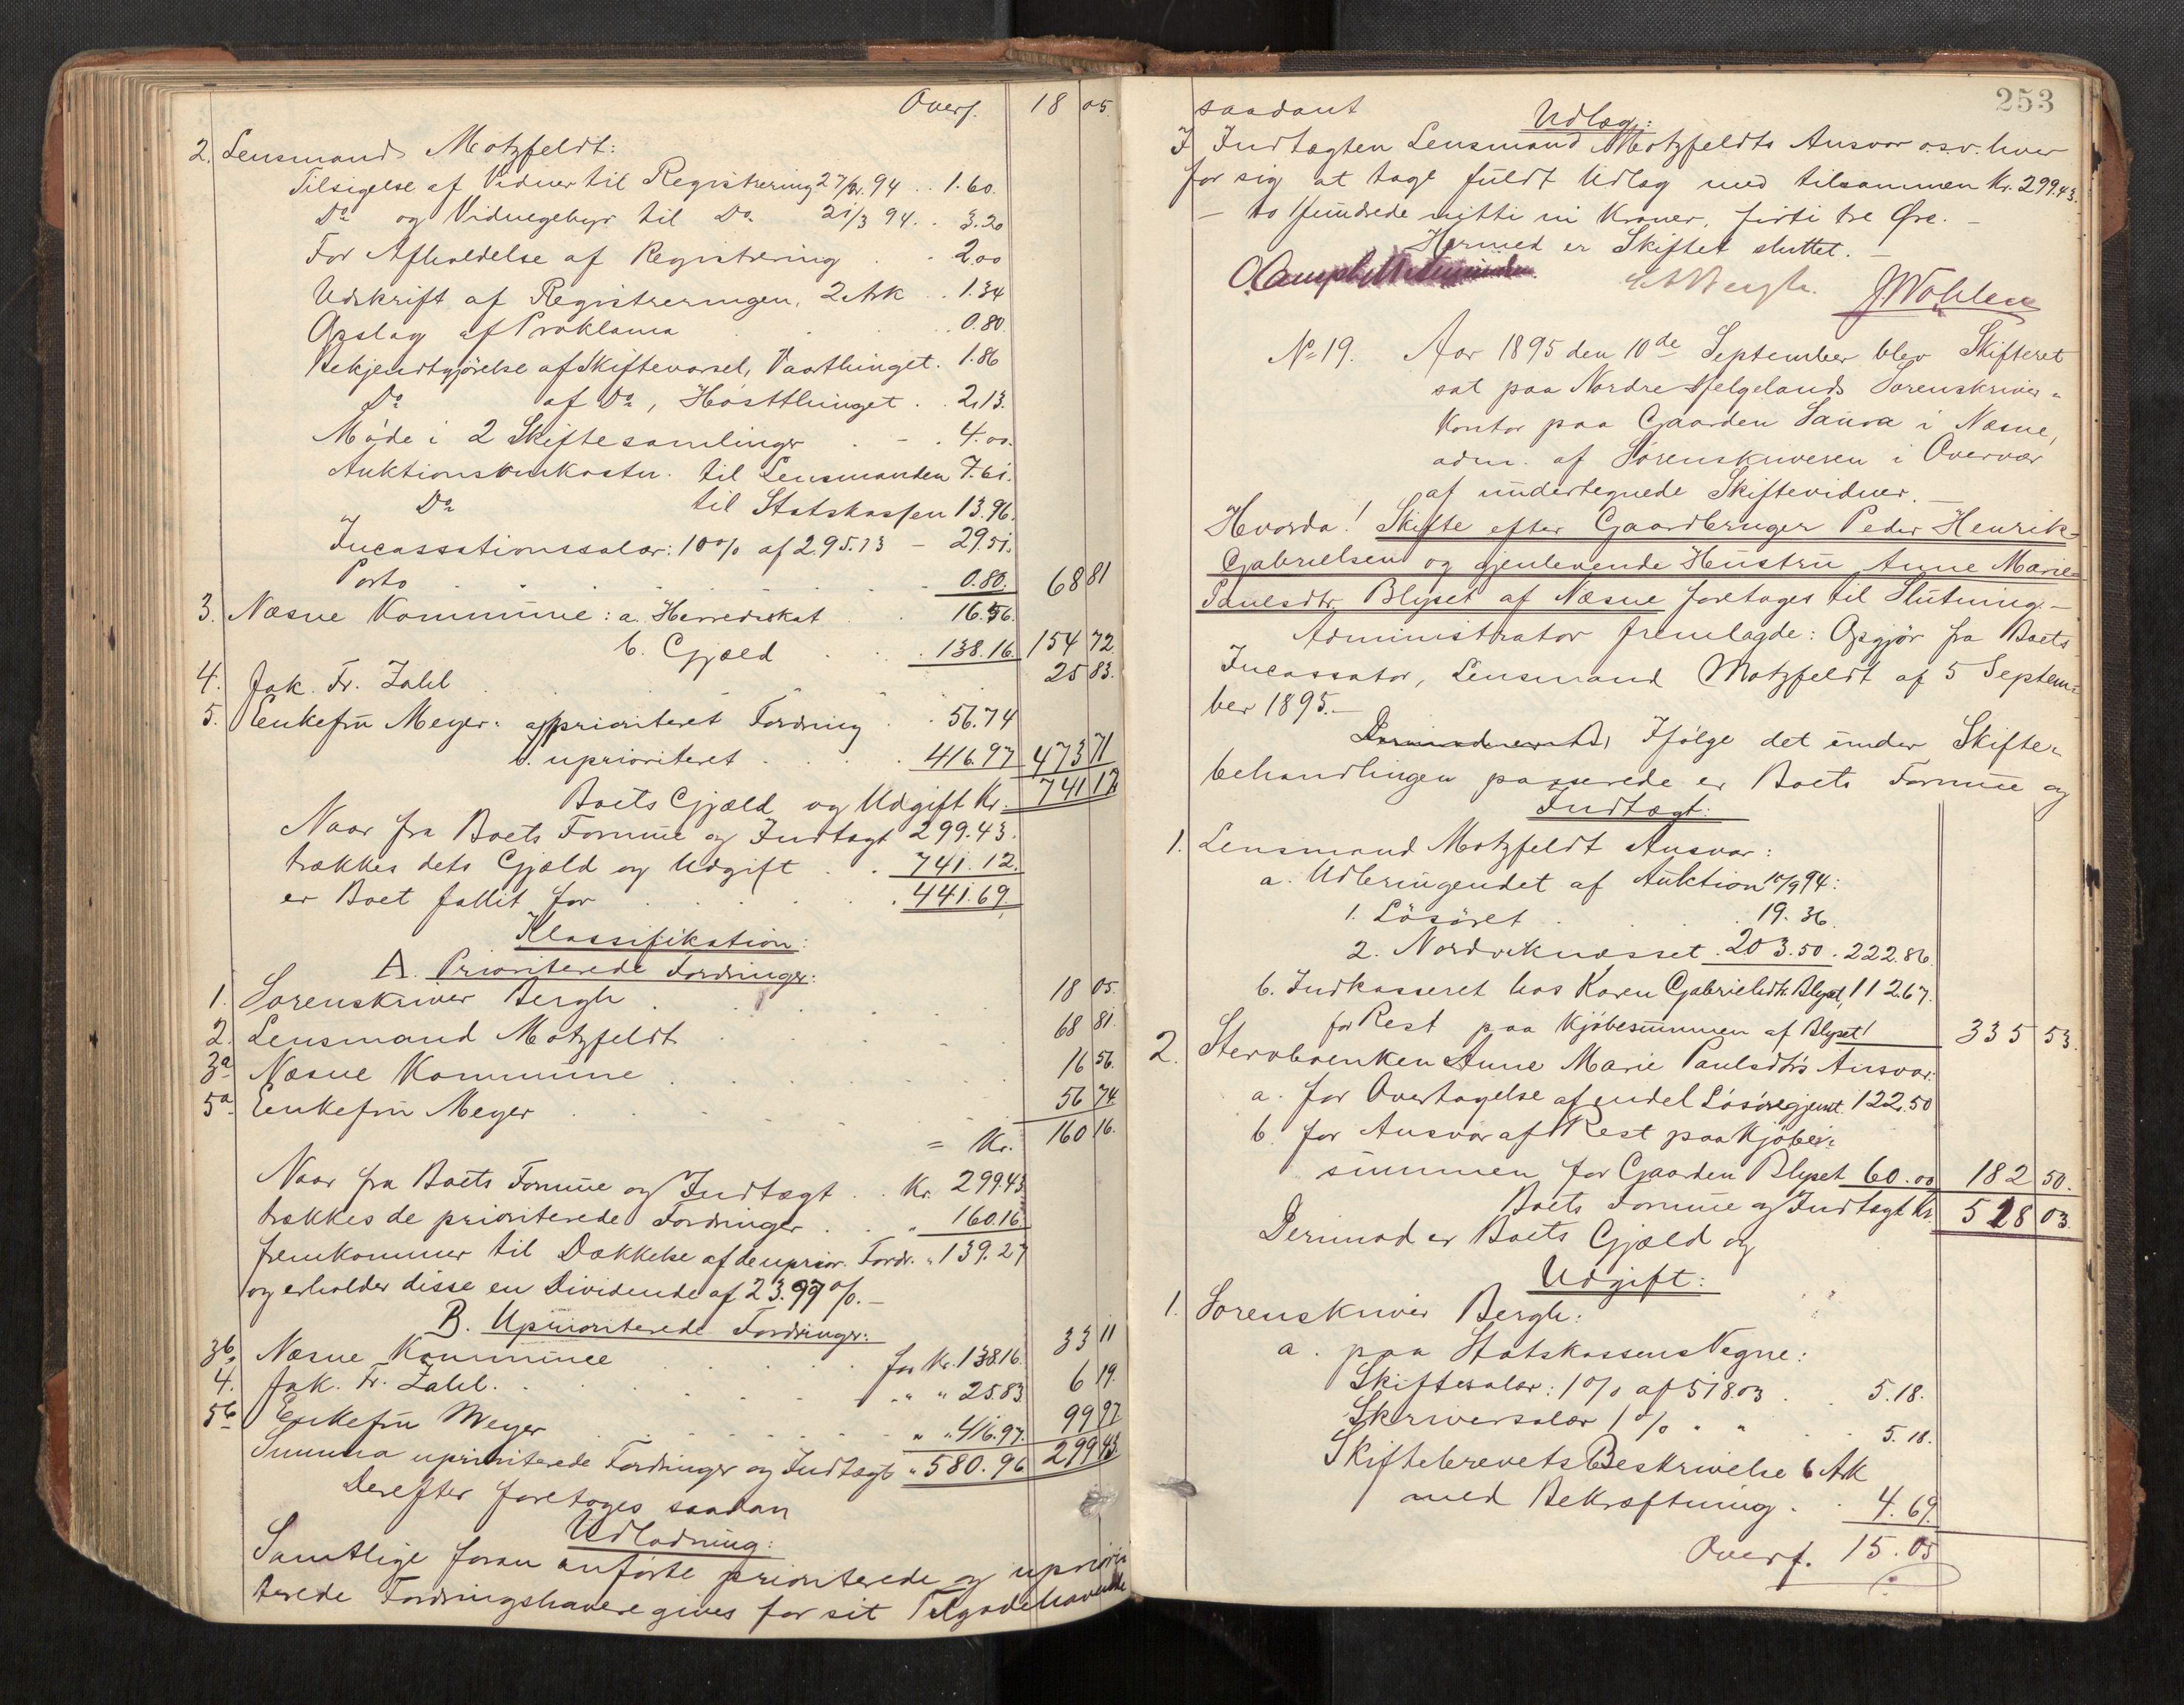 Overf. 18 05.
2. Lensmand Motzfeldt:
Tilsigelse af Vidner til Registrering 27/2. 94 .. 1.60.
Do og Vidnegebyr til Do 21/3 94 .. 3.20
For Afholdelse af Registrering . . 2.00
Udskrift af Registreringen, 2 Ark .. 1.34
Opslag af Proklama . . 0.80.
Bekjendtgjørelse af Skiftevarsel, Vaarthinget. 1.86
Do af Do, Høstthinget . . 2.13.
Møde i 2 Skiftesamlinger . - . 4.00.
Auktionsomkostn. til Lensmanden 7.61.
Do til Statskassen 13.96.
Incassationssalær: 10% af 295.13 - 29.51.
Porto . . . 0.80. 68 81
3. Næsne Kommune: a. Herredsskat . . 16.56.
b. Gjæld . . 138.16. 154 72.
4. Jak. Fr. Zahl . . . 25 83.
5. Enkefru Meyer: a. prioriteret Fordring . . 56.74
b. uprioriteret . . . 416.97 473 71
Boets Gjæld og Udgift Kr. 741 12
Naar fra Boets Formue og Indtægt 299.43.
trækkes dets Gjæld og Udgift . . 741.12.
er Boet fallit for . . . 441.69
Klassifikation:
A. Prioriterede Fordringer:
1. Sorenskriver Bergh . . . 18 05.
2. Lensmand Motzfeldt . . . 68 81.
3a Næsne Kommune . . . 16 56.
5a Enkefru Meyer . . . 56 74.
= Kr. 160 16.
Naar fra Boets Formue og Indtægt . . Kr. 299.43
trækkes de prioriterede Fordringer . . " 160.16
fremkommer til Dækkelse af de uprior. Fordr. " 139.27
og erholder disse en Dividende af 23.97 %. -
B. Uprioriterede Fordringer:
3b. Næsne Kommune . . . for Kr. 138.16. 33 11
4. Jak. Fr. Zahl. . . . " " 25.83 6 19.
5b Enkefru Meyer . . . " " 416.97. 99 97
Summa uprioriterede Fordringer og Indtægt " 580.96 299 43.
Derefter foretoges saadan
Udlodning:
Samtlige foran anførte prioriterede og uprior-
terede Fordringshavere gives for sit Tilgodehavende
253
saadant Udlæg:
I Indtægten Lensmand Motzfeldts Ansvar o.s.v. hver
for sig at tage fuldt Udlæg med tilsammen Kr. 299.43.
- to Hundrede nitti ni Kroner, firti tre Øre. -
Hermed er Skiftet sluttet. -
Bergh. J Wohlen
No 19. Aar 1895 den 10de September blev Skifteret
sat paa Nordre Helgelands Sorenskriver-
kontor paa Gaarden Saura i Næsne,
adm. af Sorenskriveren i Overvær
af undertegnede Skiftevidner. -
Hvorda! Skifte efter Gaardbruger Peder Henrik
Gabrielsen og gjenlevende Hustru Anne Marie
Paulsdtr. Blyset af Næsne foretages til Slutning. -
Administrator fremlagde: Opgjør fra Boets
Incassator, Lensmand Motzfeldt af 5 Septem-
ber 1895. -
Ifølge det under Skifte-
behandlingen passerede er Boets Formue og
Indtægt:
1. Lensmand Motzfeldt Ansvar:
a. Udbringendet af Auktion 10/9 94:
1. Løsøret . . 19.36.
2. Nordviknæsset . 203.50 . 222.86.
b. Indkasseret hos Karen Gabrielsdtr. Blyset, 112.67.
for Rest paa Kjøbesummen af Blyset 335 53.
2. Stervboenken Anne Marie Paulsdtrs Ansvar.
a. for Overtagelse af endel Løsøregjenst. 122.50
b. for Ansvar af Rest paa Kjøbe-
summen for Gaarden Blyset 60.00 182 50.
Boets Formue og Indtægt Kr. 518 03.
Derimod er Boets Gjæld og
Udgift:
1. Sorenskriver Bergh:
a. paa Statskassens Vegne:
Skiftesalær: 1% af 518.03 . . 5.18.
Skriversalær 1% " " . . 5.18.
Skiftebrevets Beskrivelse 6 Ark
med Bekræftning . . 4.69.
Overf. 15.05